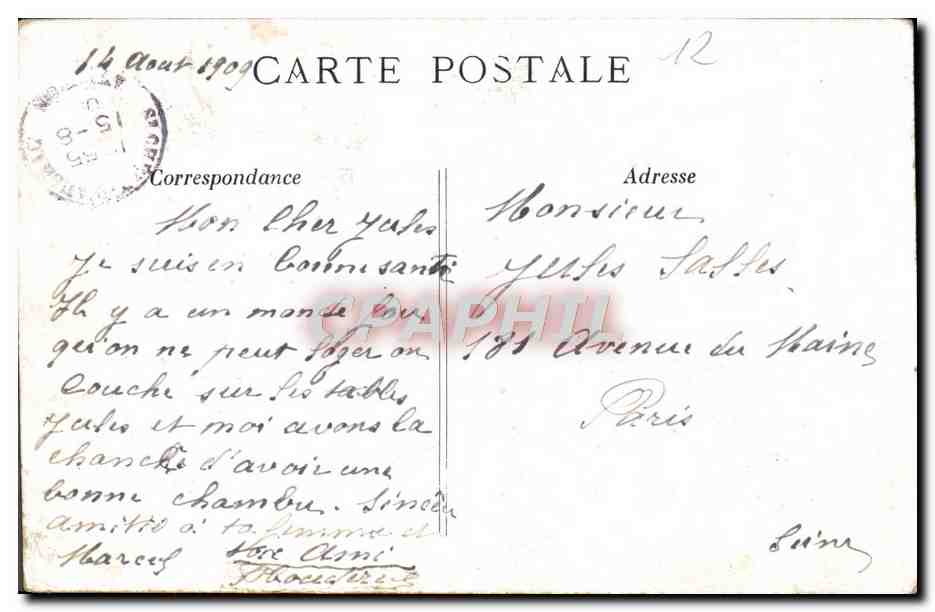 14 Aout 1909
CARTE POSTALE
12
Correspondance
Mon Cher Jules
Je suis en bonne santé
Il y a un monde
qu'on ne peut loger on
Couche sur les tables
Jules et moi avons la
chance d'avoir une
bonne chambre. Sincère
amitié à ta femme et
Marcel
Ton Ami
Adresse
Monsieur
Jules Salles
181 Avenue du Maine
Paris
Seine
CPAPHIL